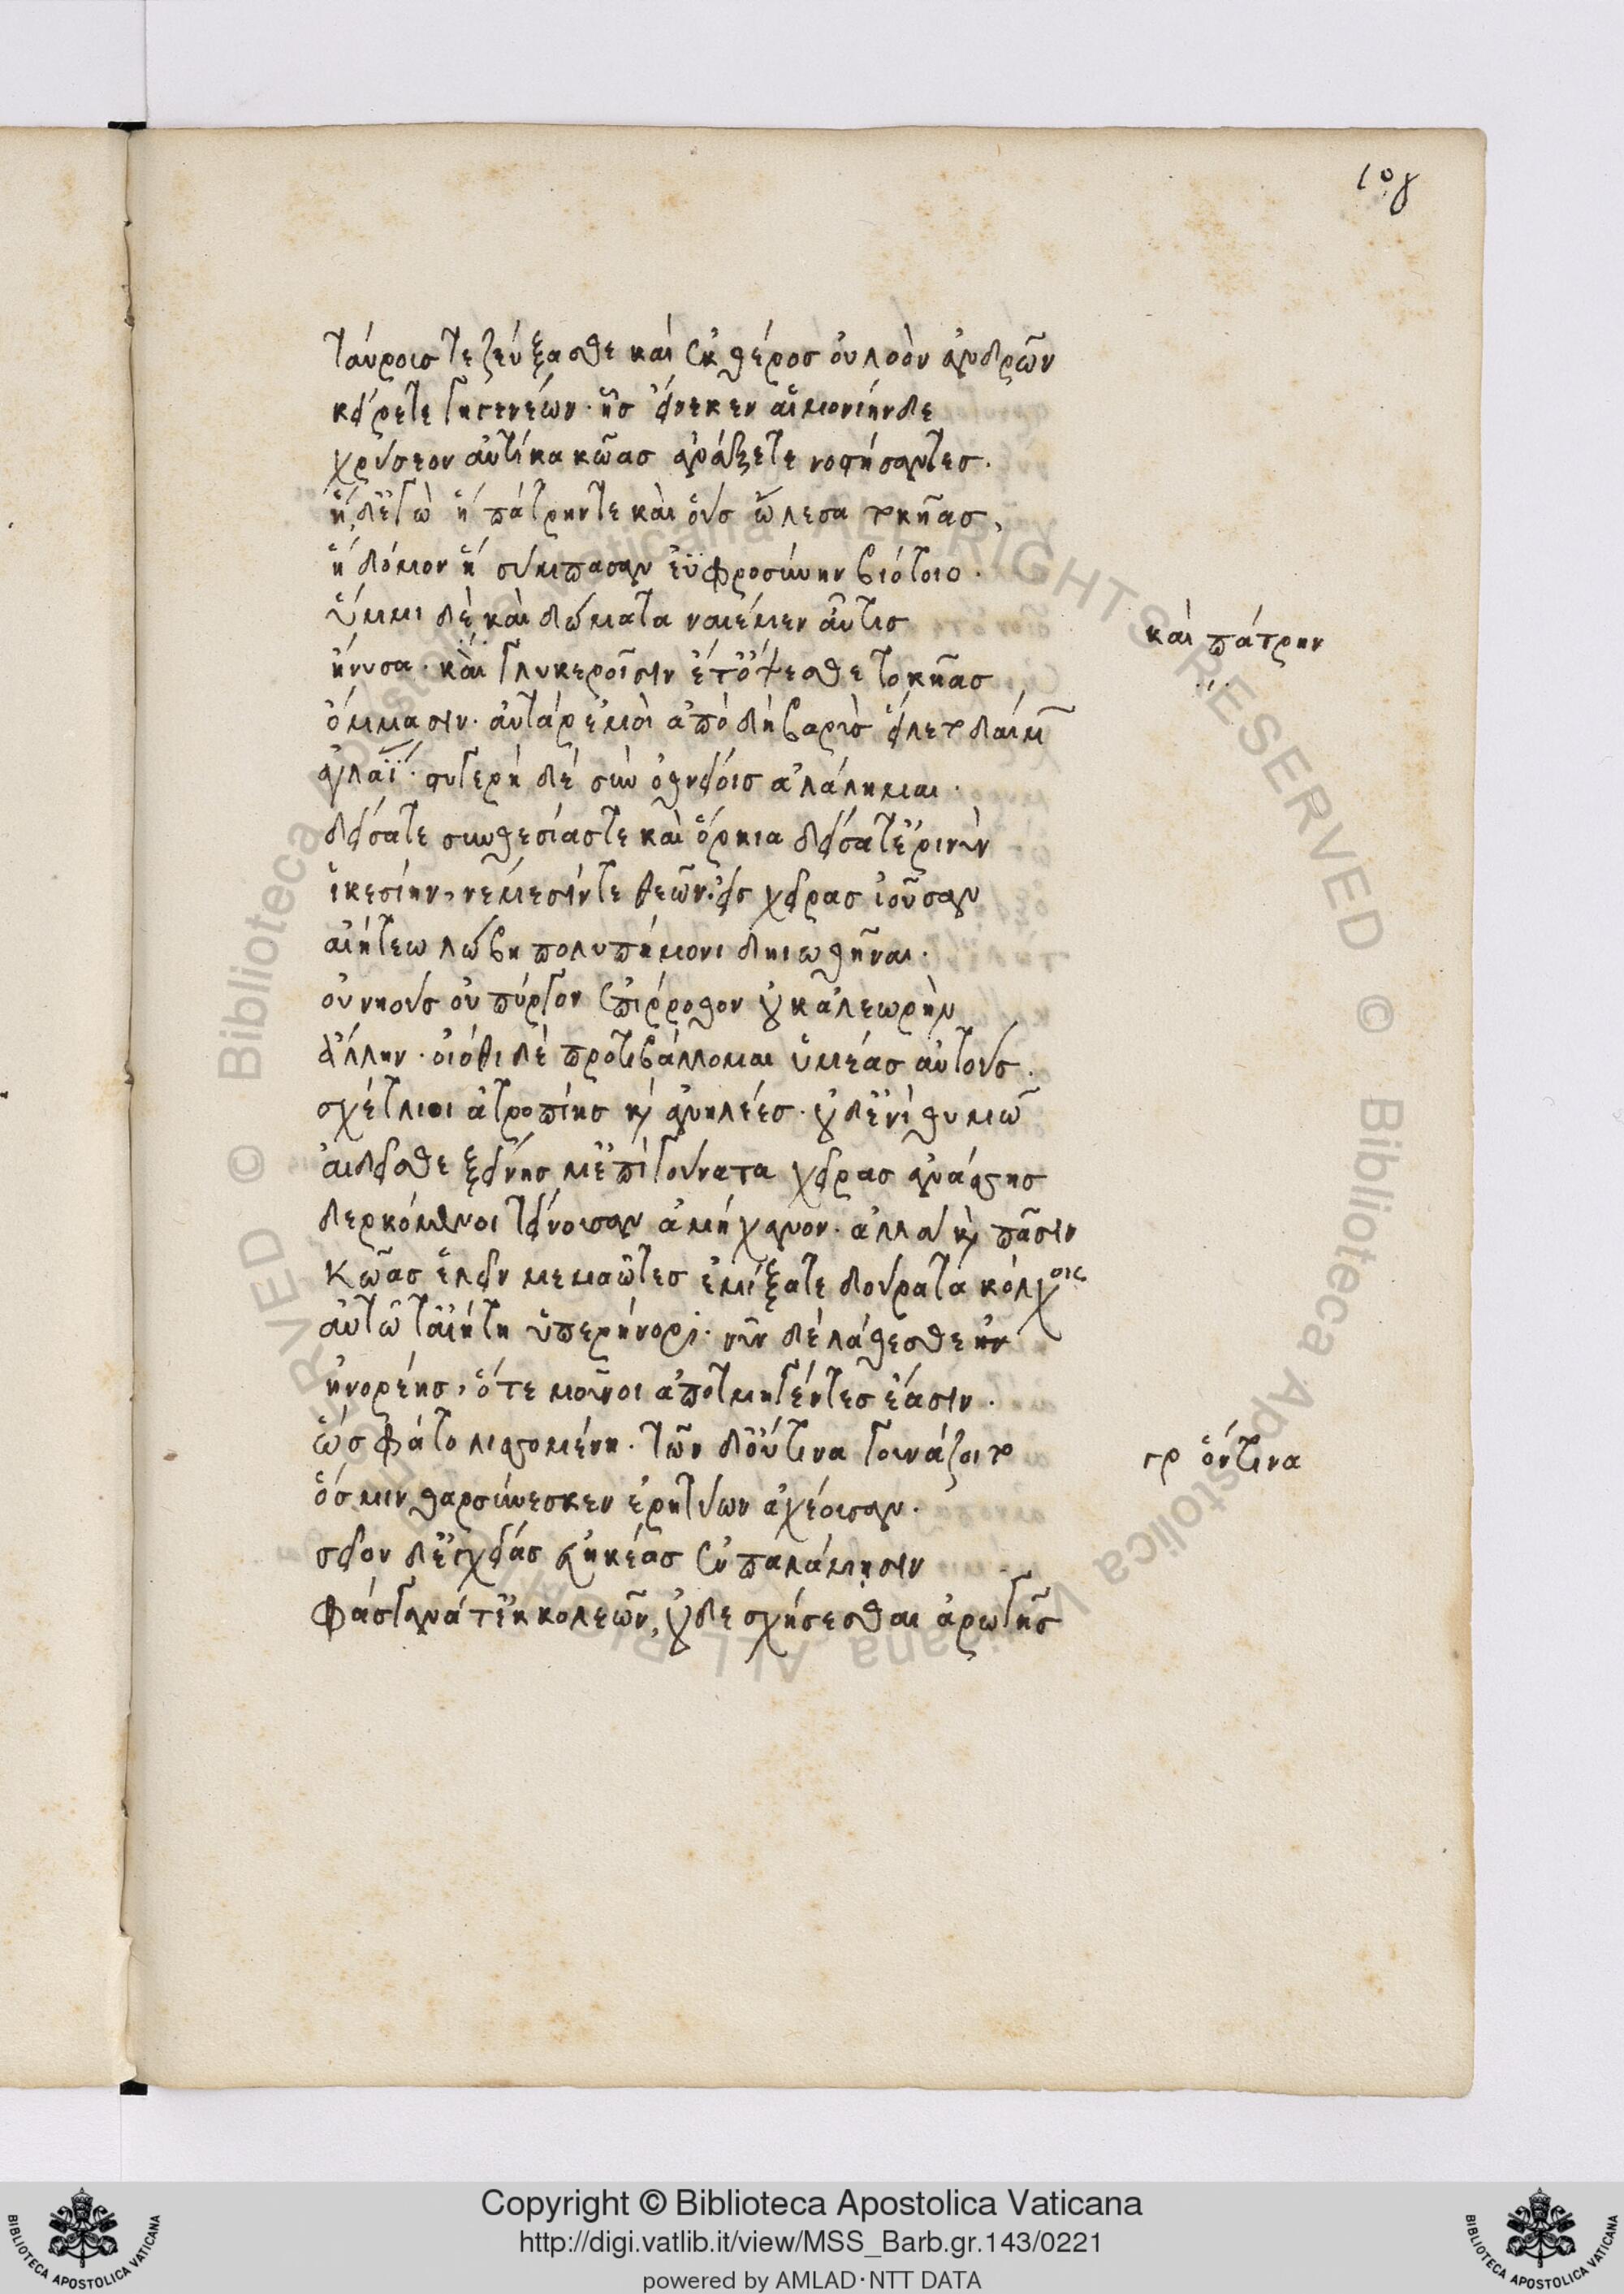 ταύροις τε ζεύξασθε καὶ ἐκ θέρος οὐλοὸν ἀνδρῶν
κείρετε γηγενέων· ἧς εἵνεκεν αἱμονίηνδε
χρύσεον αὐτίκα κῶας ἀνάξετε νοστήσαντες.
ἥδ' ἐγὼ ἡ πάτρην τε καὶ οὓς ὤλεσα τοκῆας,
ἡ δόμον ἡ σύμπασαν ἐϋφροσύνην βιότοιο.
ὔμμι δὲ καὶ δώματα ναιέμεν αὖτις
καὶ πάτρην
ἤνυσα· καὶ γλυκεροῖσιν ἔτ' ὄψεσθε τοκῆας
ὄμμασιν· αὐτὰρ ἐμοὶ ἀπὸ δὴ βαρὺς εἵλετο δαίμ
ἀγλαΐ· στυγερὴ δὲ σὺν ὀθνείοις ἀλάλημαι.
δείσατε συνθεσίας τε καὶ ὅρκια δείσατ' ἐρινὺν
ἱκεσίην, νέμεσίν τε θεῶν· εἰς χεῖρας ἰοῦσαν
αἰήτεω λώβη πολυπήμονι δηιωθῆναι.
οὐ νηοὺς οὐ πύργον ἐπίρροθον οὐκ ἀλεωρὴν
ἄλλην· οἰόθι δὲ προτιβάλλομαι ὑμέας αὐτούς.
σχέτλιοι ἀτροπίης καὶ ἀνηλέες· οὐδ' ἐνὶ θυμῶ
αἰδεῖσθε ξείνης μ' ἐπὶ γούνατα χεῖρας ἀνάσσης
δερκόμενοι τείνουσαν ἀμήχανον· ἀλλὰ καὶ πᾶσιν
κῶας ἑλεῖν μεμαῶτες ἐμίξατε δούρατα κόλχοις
αὐτῶ τ' αἰήτη ὑπερήνορι· νῦν δὲ λάθεσθε ἠν
ἠνορέης, ὅτε μοῦνοι ἀποτμηγέντες ἔασιν.
ὣς φάτο λισσομένη· τῶν δ' οὕτινα γουνάζοιτο
γρ ὅντινα
ὅς μιν θαρσύνεσκεν ἐρητύων ἀχέουσαν.
σεῖον δ' ἐγχείας εὐηκέας ἐν παλάμησιν
φάσγανά τ' ἐκ κολεῶν, οὐδὲ σχήσεσθαι ἀρωγῆς
Copyright © Biblioteca Apostolica Vaticana
http://digi.vatlib.it/view/MSS_Barb.gr.143/0221
powered by AMLAD·NTT DATA